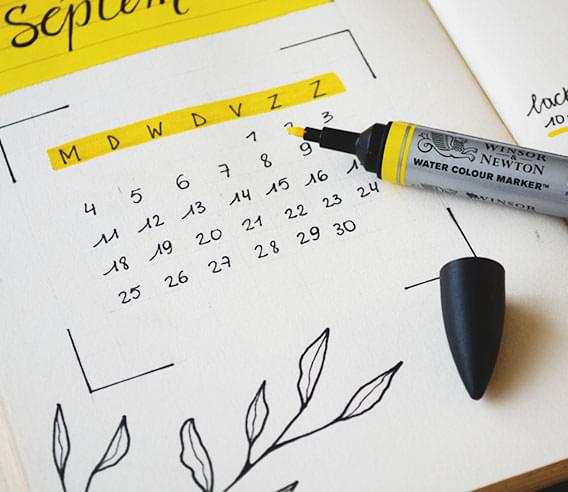 Septem
M D W D V Z Z
1 2 3
4 5 6 7 8 9
11 12 13 14 15 16
18 19 20 21 22 23 24
25 26 27 28 29 30
WINSOR
& NEWTON
WATER COLOUR MARKER™
WINSOR
10